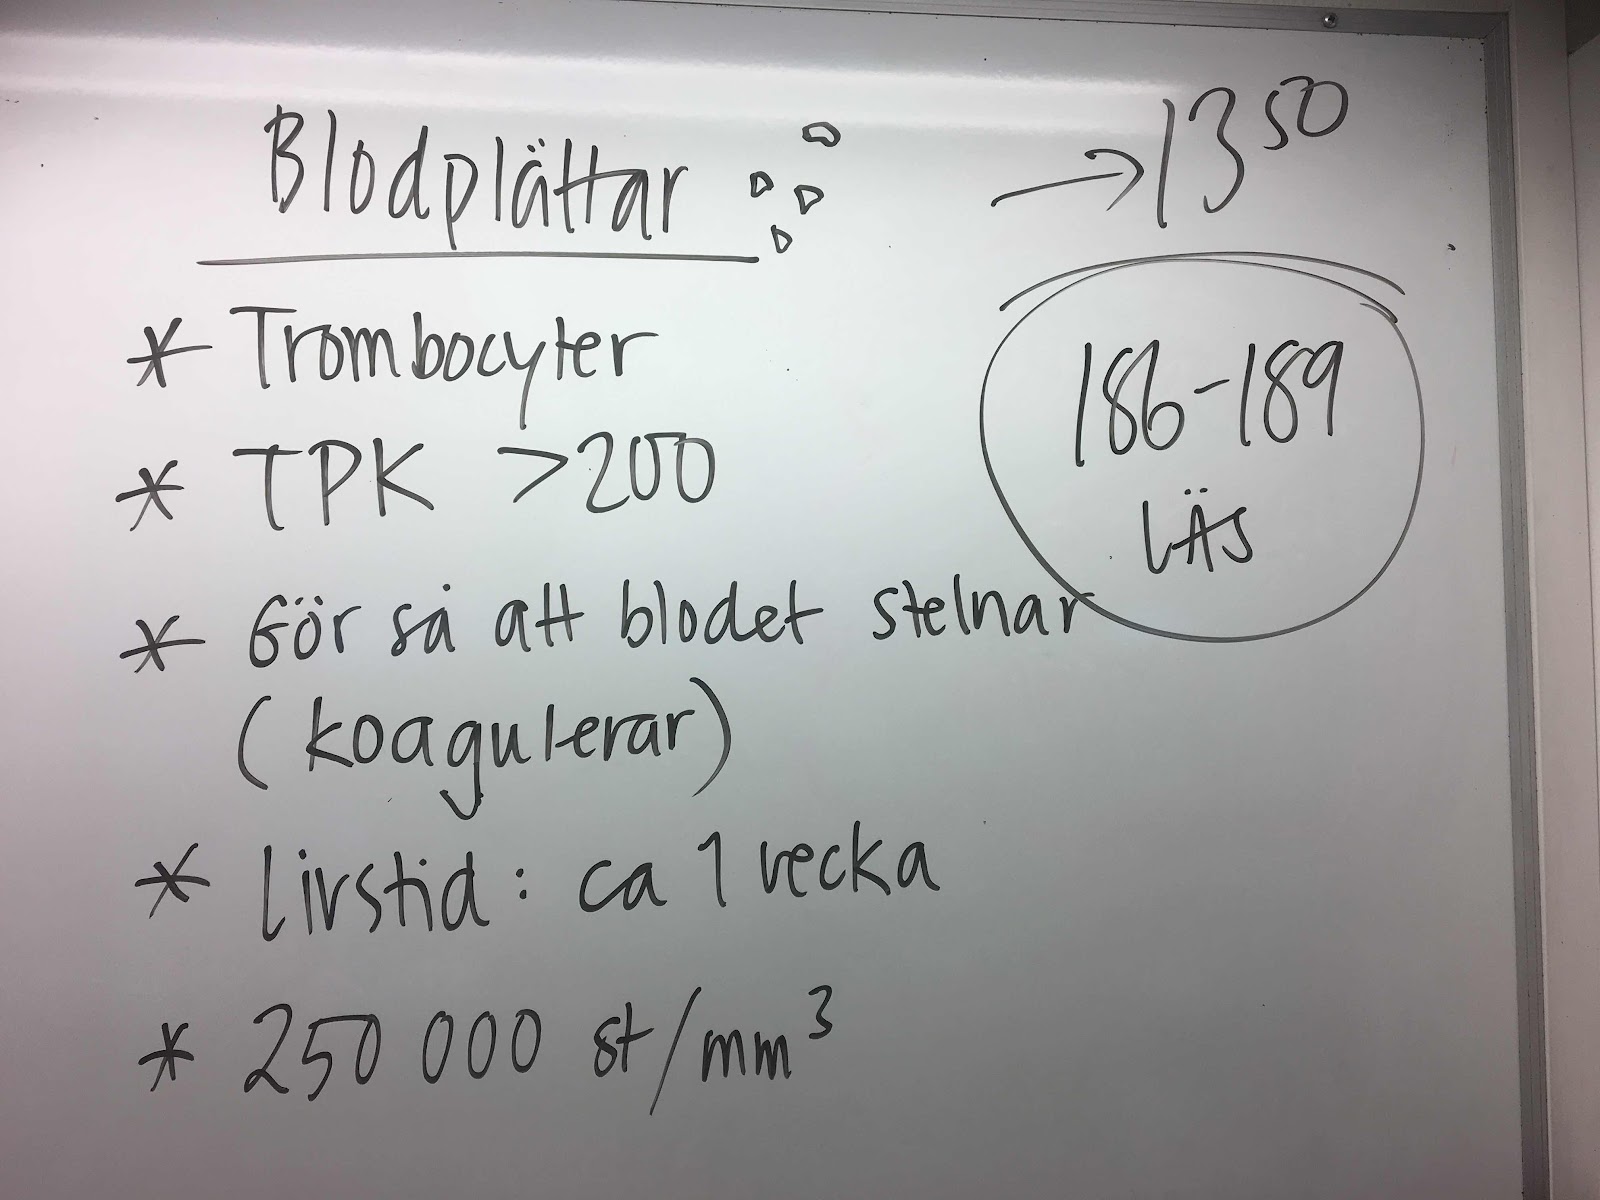 Blodplättar
* Trombocyter
* TPK >200
* Gör så att blodet stelnar
(koagulerar)
* Livstid: ca 1 vecka
* 250 000 st/mm³
→ 13⁵⁰
186-189
LÄS